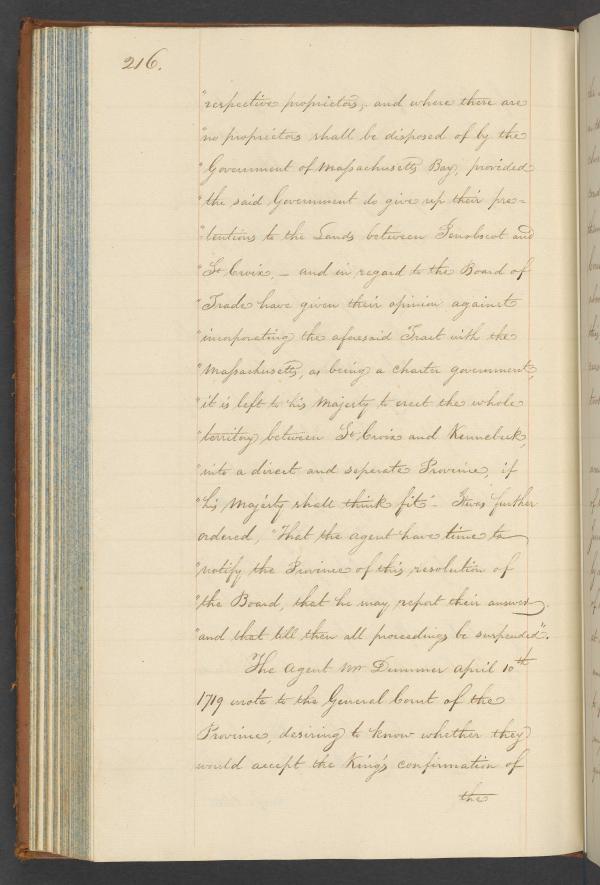 216.
"respective proprietors, and where there are
"no proprietors shall be disposed of by the
"Government of Massachusetts Bay, provided
"the said Government do give up their pre=
"tentions to the Lands between Penobscot and
"St Croix, – and in regard to the Board of
"Trade have given their opinion against
"incorporating the aforesaid Tract with the
"Massachusetts, as being a charter government,
"it is left to his Majesty to erect the whole
"territory between St Croix and Kennebeck,
"into a direct and seperate Province, if
"his Majesty shall think fit" – It was further
ordered, "That the agent have time to
"notify the Province of this resolution of
"the Board, that he may report their answer,
"and that till then all proceedings be suspended".
The Agent Mr Dummer April 10th
1719 wrote to the General Court of the
Province, desiring to know whether they
would accept the King's confirmation of
the